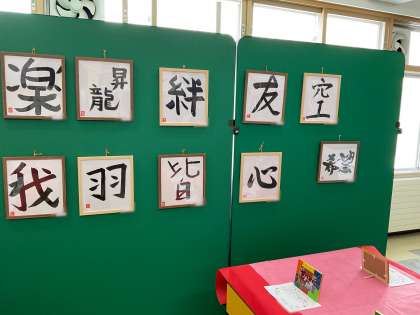 楽
昇
龍
絆
友
空
我
羽
皆
心
希望